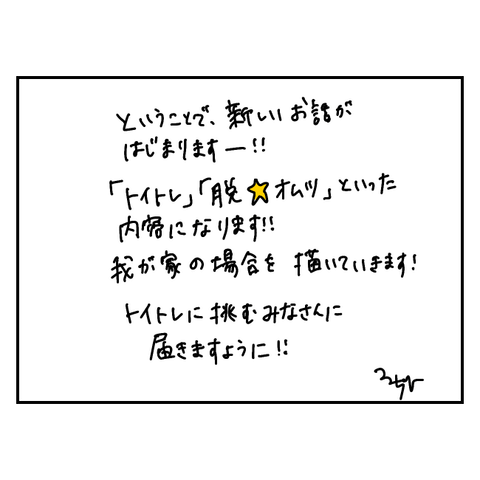 ということで、新しいお話が
はじまりますー!!
「トイトレ」「脱⭐オムツ」といった
内容になります!!
我が家の場合を描いていきます!
トイトレに挑むみなさんに
届きますように!!